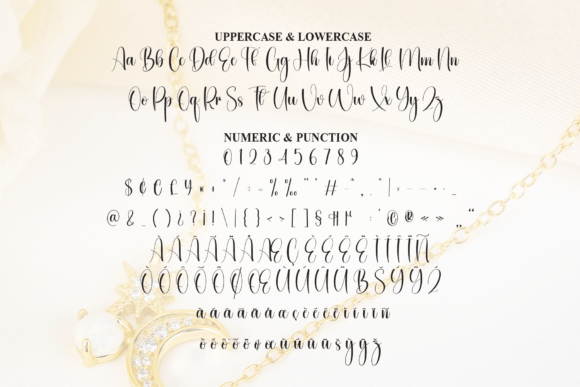 UPPERCASE & LOWERCASE
Aa Bb Cc Dd Ee Ff Gg Hh Ii Jj Kk Ll Mm Nn
Oo Pp Qq Rr Ss Tt Uu Vv Ww Xx Yy Zz
NUMERIC & PUNCTION
0 1 2 3 4 5 6 7 8 9
$ ¢ € £ ¥ / : % ‰ #
@ & _ ( ) ¿ ? ¡ ! \ | { } < > [ ] § « » „ “
À Á Â Ã Ä Å Æ Ç È É Ê Ë Ì Í Î Ï Ñ
Ò Ó Ô Õ Ö Ø Œ Ù Ú Û Ü
à á â ã ä å æ ç è é ê ë ì í î ï ñ
ò ó ô õ ö ø œ ù ú û ü